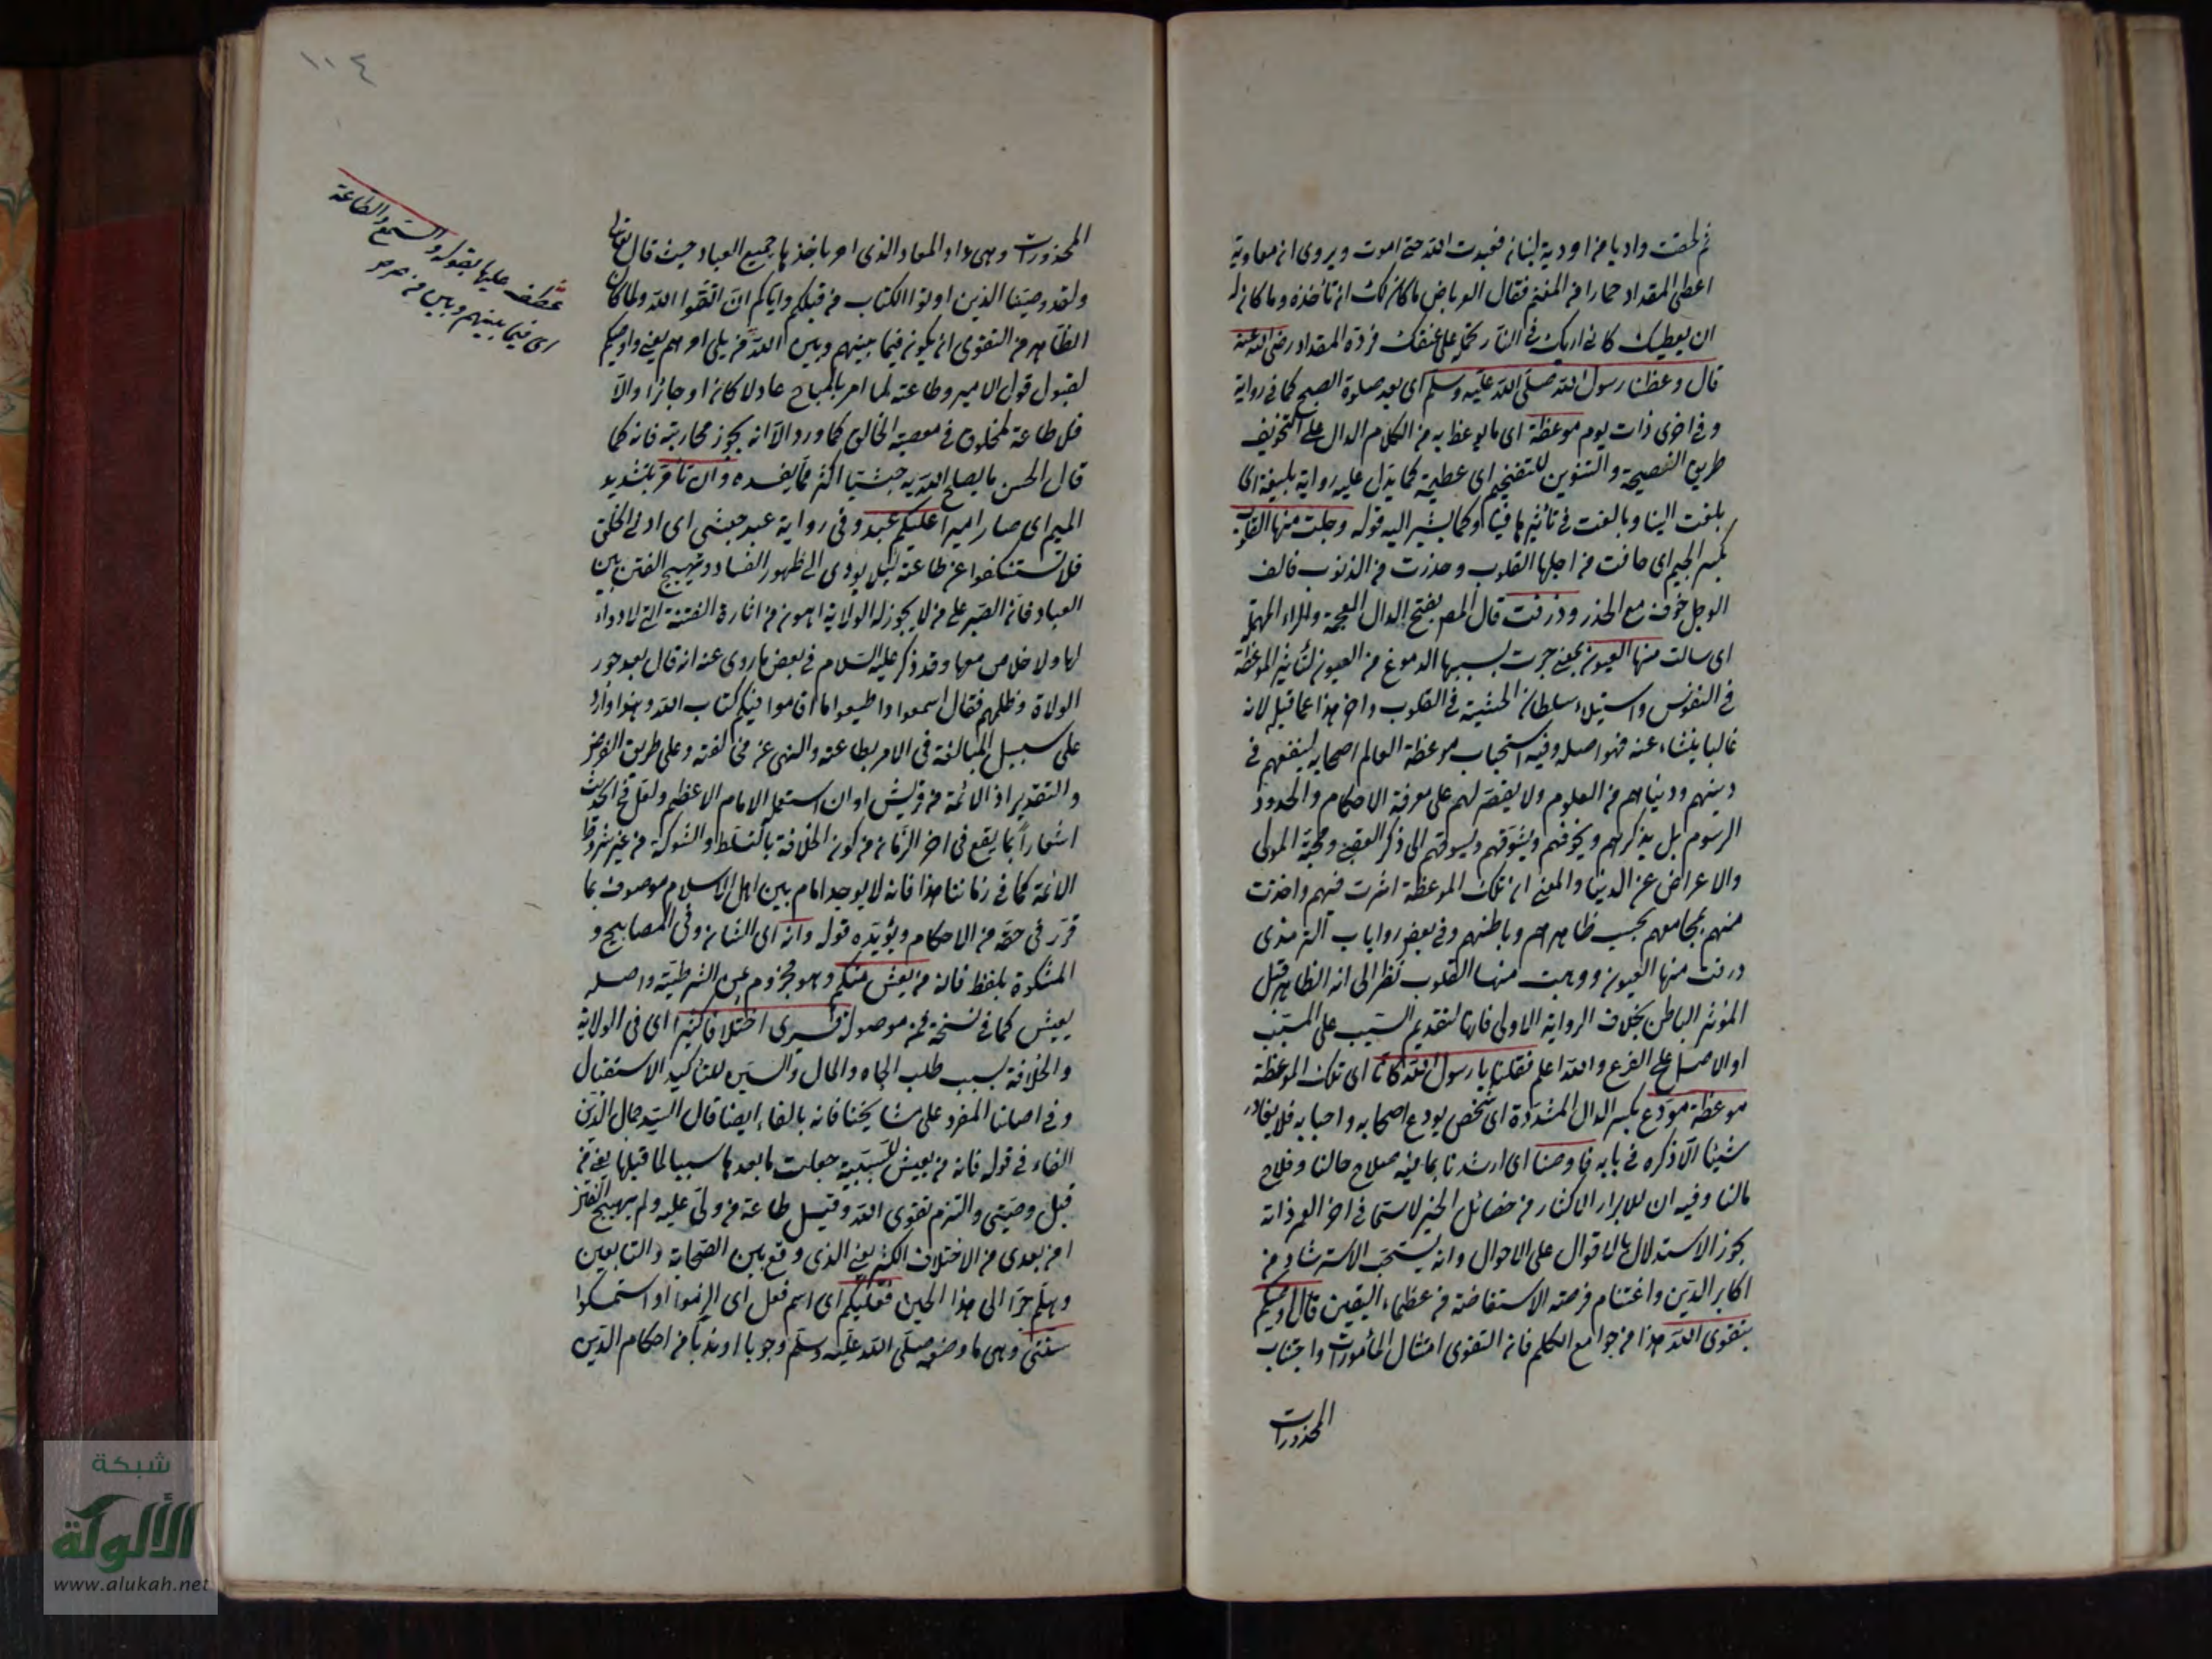 ثم لحقت واديا من اودية لبنان فعبدت الله حتى اموت ويروى ان معاوية
اعطى المقداد حمارا من المغنم فقال العرباض ما كان لك ان تأخذه وما كان له
ان يعطيك كاني اريك في النار تحمله على عنقك فرده المقداد رضى الله عنه
قال وعظنا رسول الله صلى الله عليه وسلم اى بعد صلوة الصبح كما في رواية
وفي اخرى ذات يوم موعظة اى ما يوعظ به من الكلام الدال على التخويف
طريق النصيحة والتنوين للتفخيم اى عظيمة كما يدل عليه رواية بليغة اى
بلغت الينا وبالغت في تأثيرها فينا وكما يشير اليه قوله وجلت منها القلوب
بكسر الجيم اى خافت من اجلها القلوب وحذرت من الذنوب فالف
الوجل خوف مع الحذر وذرفت قال المص بفتح الذال المعجمة والراء المهملة
اى سالت منها العيون بمعنى جرت بسببها الدموع من العيون لتأثير الموعظة
في النفوس واستيلاء سلطان الخشية في القلوب واخر هذا عما قبله لانه
غالبا ينشاء عنه فهو اصله وفيه استحباب موعظة العالم اصحابه لينفعهم في
دينهم ودنياهم من العلوم ولا يقتصر لهم على معرفة الاحكام والحدود
الرسوم بل يذكرهم ويخوفهم ويشوقهم ويسوقهم الى ذكر العقبى ومحبة المولى
والاعراض عن الدنيا والمعنى ان تلك الموعظة اثرت فيهم واخذت
منهم بمجامعهم بحسب ظاهرهم وباطنهم وفي بعض روايات الترمذى
درفت منها العيون ووجلت منها القلوب نظرا الى انه الظاهر قبل
المؤثر الباطن بخلاف الرواية الاولى فانها لتقديم السبب على المسبب
او الاصل على الفرع والله اعلم فقلنا يا رسول الله كانها اى تلك الموعظة
موعظة مودع بكسر الدال المشددة اى شخص يودع اصحابه واحبابه فلا يغادر
شيئا الا ذكره في بابه فاوصنا اى ارشدنا بما فيه صلاح حالنا وفلاح
مالنا وفيه ان للابرار الاكثار من خصائل الخير لا سيما في اخر العمر ذاته
يجوز الاستدلال بالاقوال على الاحوال وانه يستحب الاسترشاد من
اكابر الدين واغتنام فرصته الاستفاضة من عظماء اليقين قال اوصيكم
بتقوى الله هذا من جوامع الكلم فان التقوى امتثال المأمورات واجتناب
المحذورات
١٠٤
المحذورات وهى زاد المعاد الذى امر باخذها جميع العباد حيث قال تعالى
ولقد وصينا الذين اوتوا الكتاب من قبلكم واياكم ان اتقوا الله ولما كان
الظاهر من التقوى ان يكون فيما بينهم وبين الله من يلى امرهم يعنى واوصيكم
لقبول قول الامير وطاعته لما امر بالمباح عادلا كان او جائرا والا
فلا طاعة لمخلوق في معصية الخالق كما ورد الا انه لا يجوز محاربته فانه كما
قال الحسن ما يصلح الله به اكثر مما يفسده وان تأمر بتشديد
الميم اى صار اميرا عليكم عبد وفي رواية عبد حبشى اى ادنى الخلق
فلا تستنكفوا عن طاعته لئلا يودى الى ظهور الفساد وتهييج الفتن بين
العباد فان الصبر على من لا يجوز له الولاية اهون من اثارة الفتنة التي لا دواء
لها ولا خلاص منها وقد ذكر عليه السلام في بعض ما روى عنه انه قال بعد جور
الولاة وظلمهم فقال اسمعوا واطيعوا ما اقاموا فيكم كتاب الله وهذا وارد
على سبيل المبالغة في الامر بطاعته والنهى عن مخالفته وعلى طريق الفرض
والتقدير اذ الائمة من قريش او ان استعمله الامام الاعظم ولعل في الحديث
اشعارا بما يقع في اخر الزمان من كون الخلافة بالتسلط والشوكة من غير شروط
الائمة كما في زماننا هذا فانه لا يوجد امام بين اهل الاسلام موصوف بما
قرر في حقه من الاحكام ويؤيده قوله وانه اى الشان وفي المصابيح و
المشكوة بلفظ فانه من يعش منكم وهو مجزوم من الشرطية واصله
يعيش كما في نسخة فمن موصول فسيرى اختلافا كثيرا اى في الولاية
والخلافة بسبب طلب الجاه والمال والسين للتأكيد الاستقبال
وفي اصلنا المقرو على مشايخنا فانه بالفاء ايضا قال السيد جمال الدين
الفاء في قوله فانه من يعيش للسببية جعلت ما بعدها سببا لما قبلها يعنى من
قبل وصيتى والتزم تقوى الله وقبل طاعة من ولى عليه ولم يهيج الفتن
امن بعدى من الاختلاف الكثير يعنى الذى وقع بين الصحابة والتابعين
وهلم جرا الى هذا الحين فعليكم اى اسم فعل اى الزموا او استمسكوا
سنتى وهى ما وضعه صلى الله عليه وسلم وجوبا او ندبا من احكام الدين
عطف عليها بقوله والسمع والطاعة
اى فيما بينهم وبين من
شبكة
الألوكة
www.alukah.net